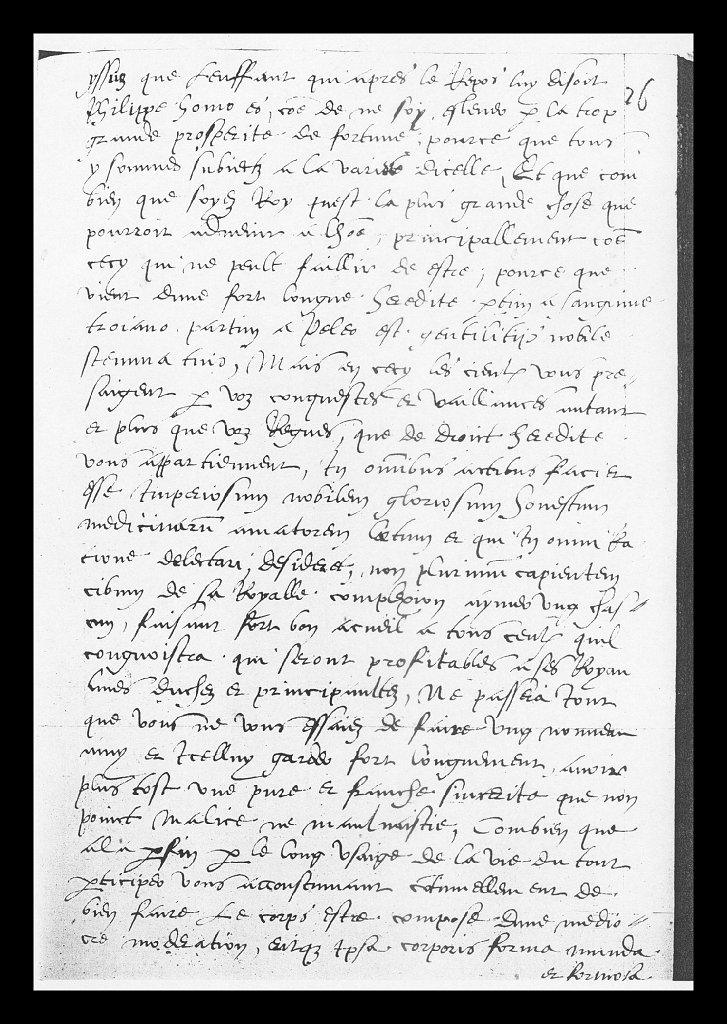 yssue que Lenffant qui apres le Repos luy disoit
26
Philippe homo es, coē de ne soy esleuer p la trop
grande prosperite de fortune, pource que tous
y sommes subiectz a la dicelle, Et que com
bien que soyez Roy quest la plus grande chose que
pourroit aduenir a lhōe, principallement coē
cecy qui ne peult faillir de estre, pource que
vient dune fort longue heredite ptim a sanguine
troiano partim a Peleo est gentilitijs nobile
stemma tuis, Mais en cecy les cieulx vous pre-
saigent p voz conquestes et vaillances autant
et plus que voz Regnes, que de droict heredite
vous appartiennent, In omnibus actibus faciet
esse Imperiosum nobilem gloriosum honestum
medicinarū amatorem Letum et qui In omni Ra
cione delectari, desideret, non plurimum capientem
cibum de sa Royalle complexion aymer ung chas-
cun, faisant fort bon acueil a tous ceulx quil
congnoistra qui seront profitables a ses Royau
lmes duchez et principaultez, Ne passera Iour
que vous ne vous essaiez de faire ung nouueau
amy et Icelluy garder fort longuement, auoir
plus tost une pure et franche sincerite que non
poinct malice ne mauluaistie, Combien que
a la pfin p le long usaige de la vie du tout
pticiper vous acoustumant cōtinuellement de
bien faire Le corps estre compose dune medio-
cre moderation, eritqz Ipsa corporis forma munda
et formosa